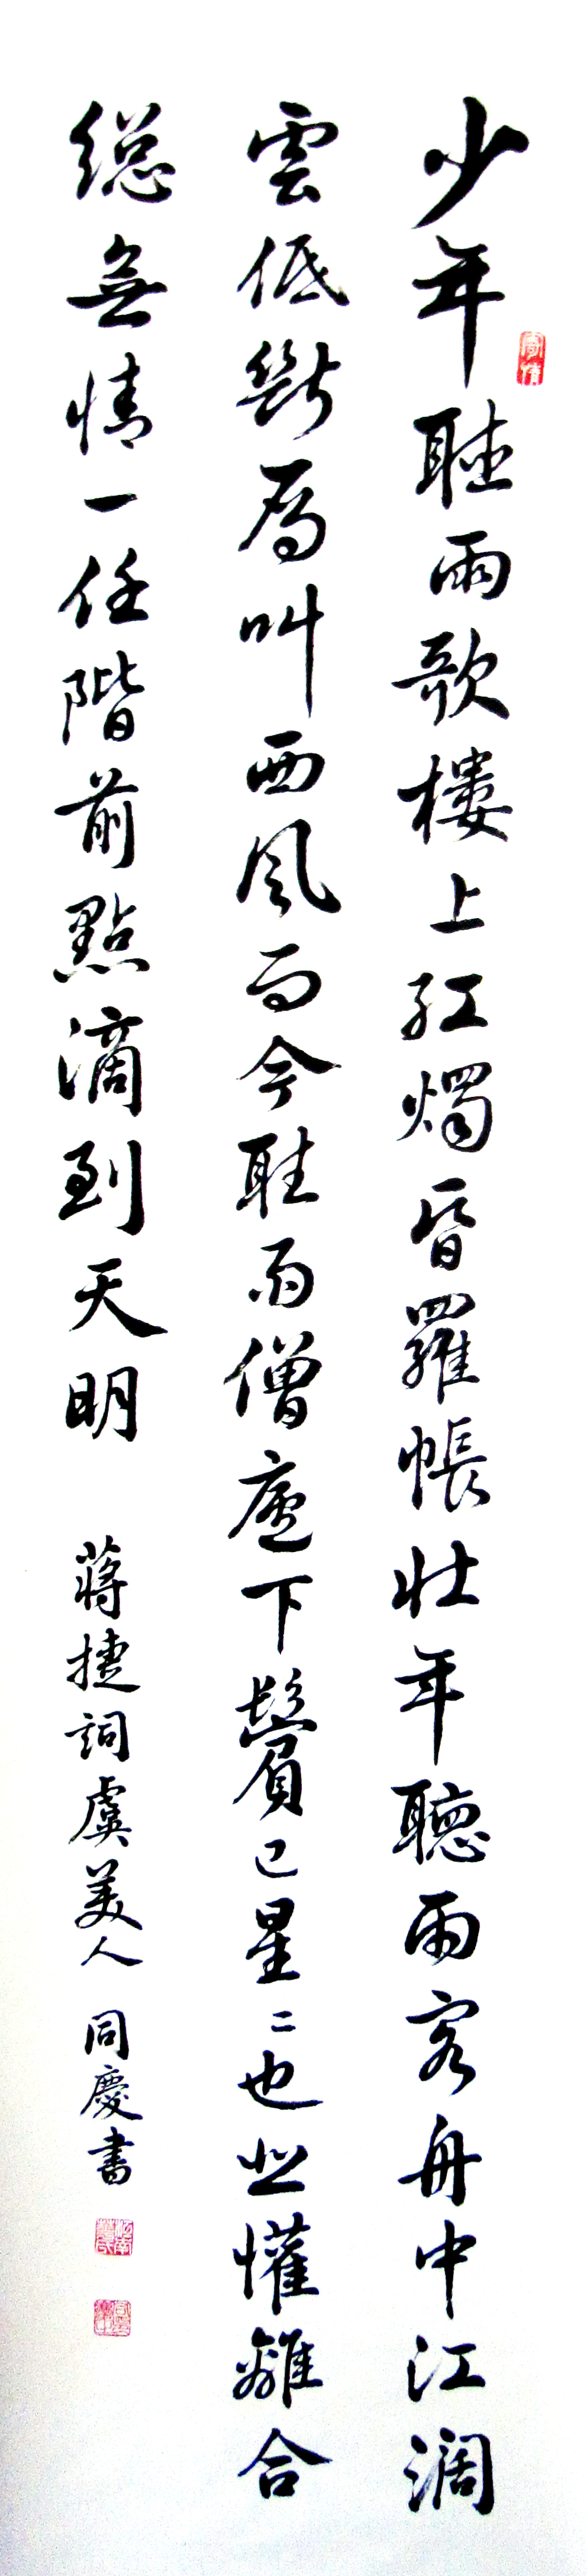 少年聼雨歌樓上紅燭昏羅帳壯年聽雨客舟中江濶
雲低斷雁叫西風而今聼雨僧廬下鬢已星二也悲懽離合
総無情一任階前點滴到天明
蔣捷詞虞美人 同慶書